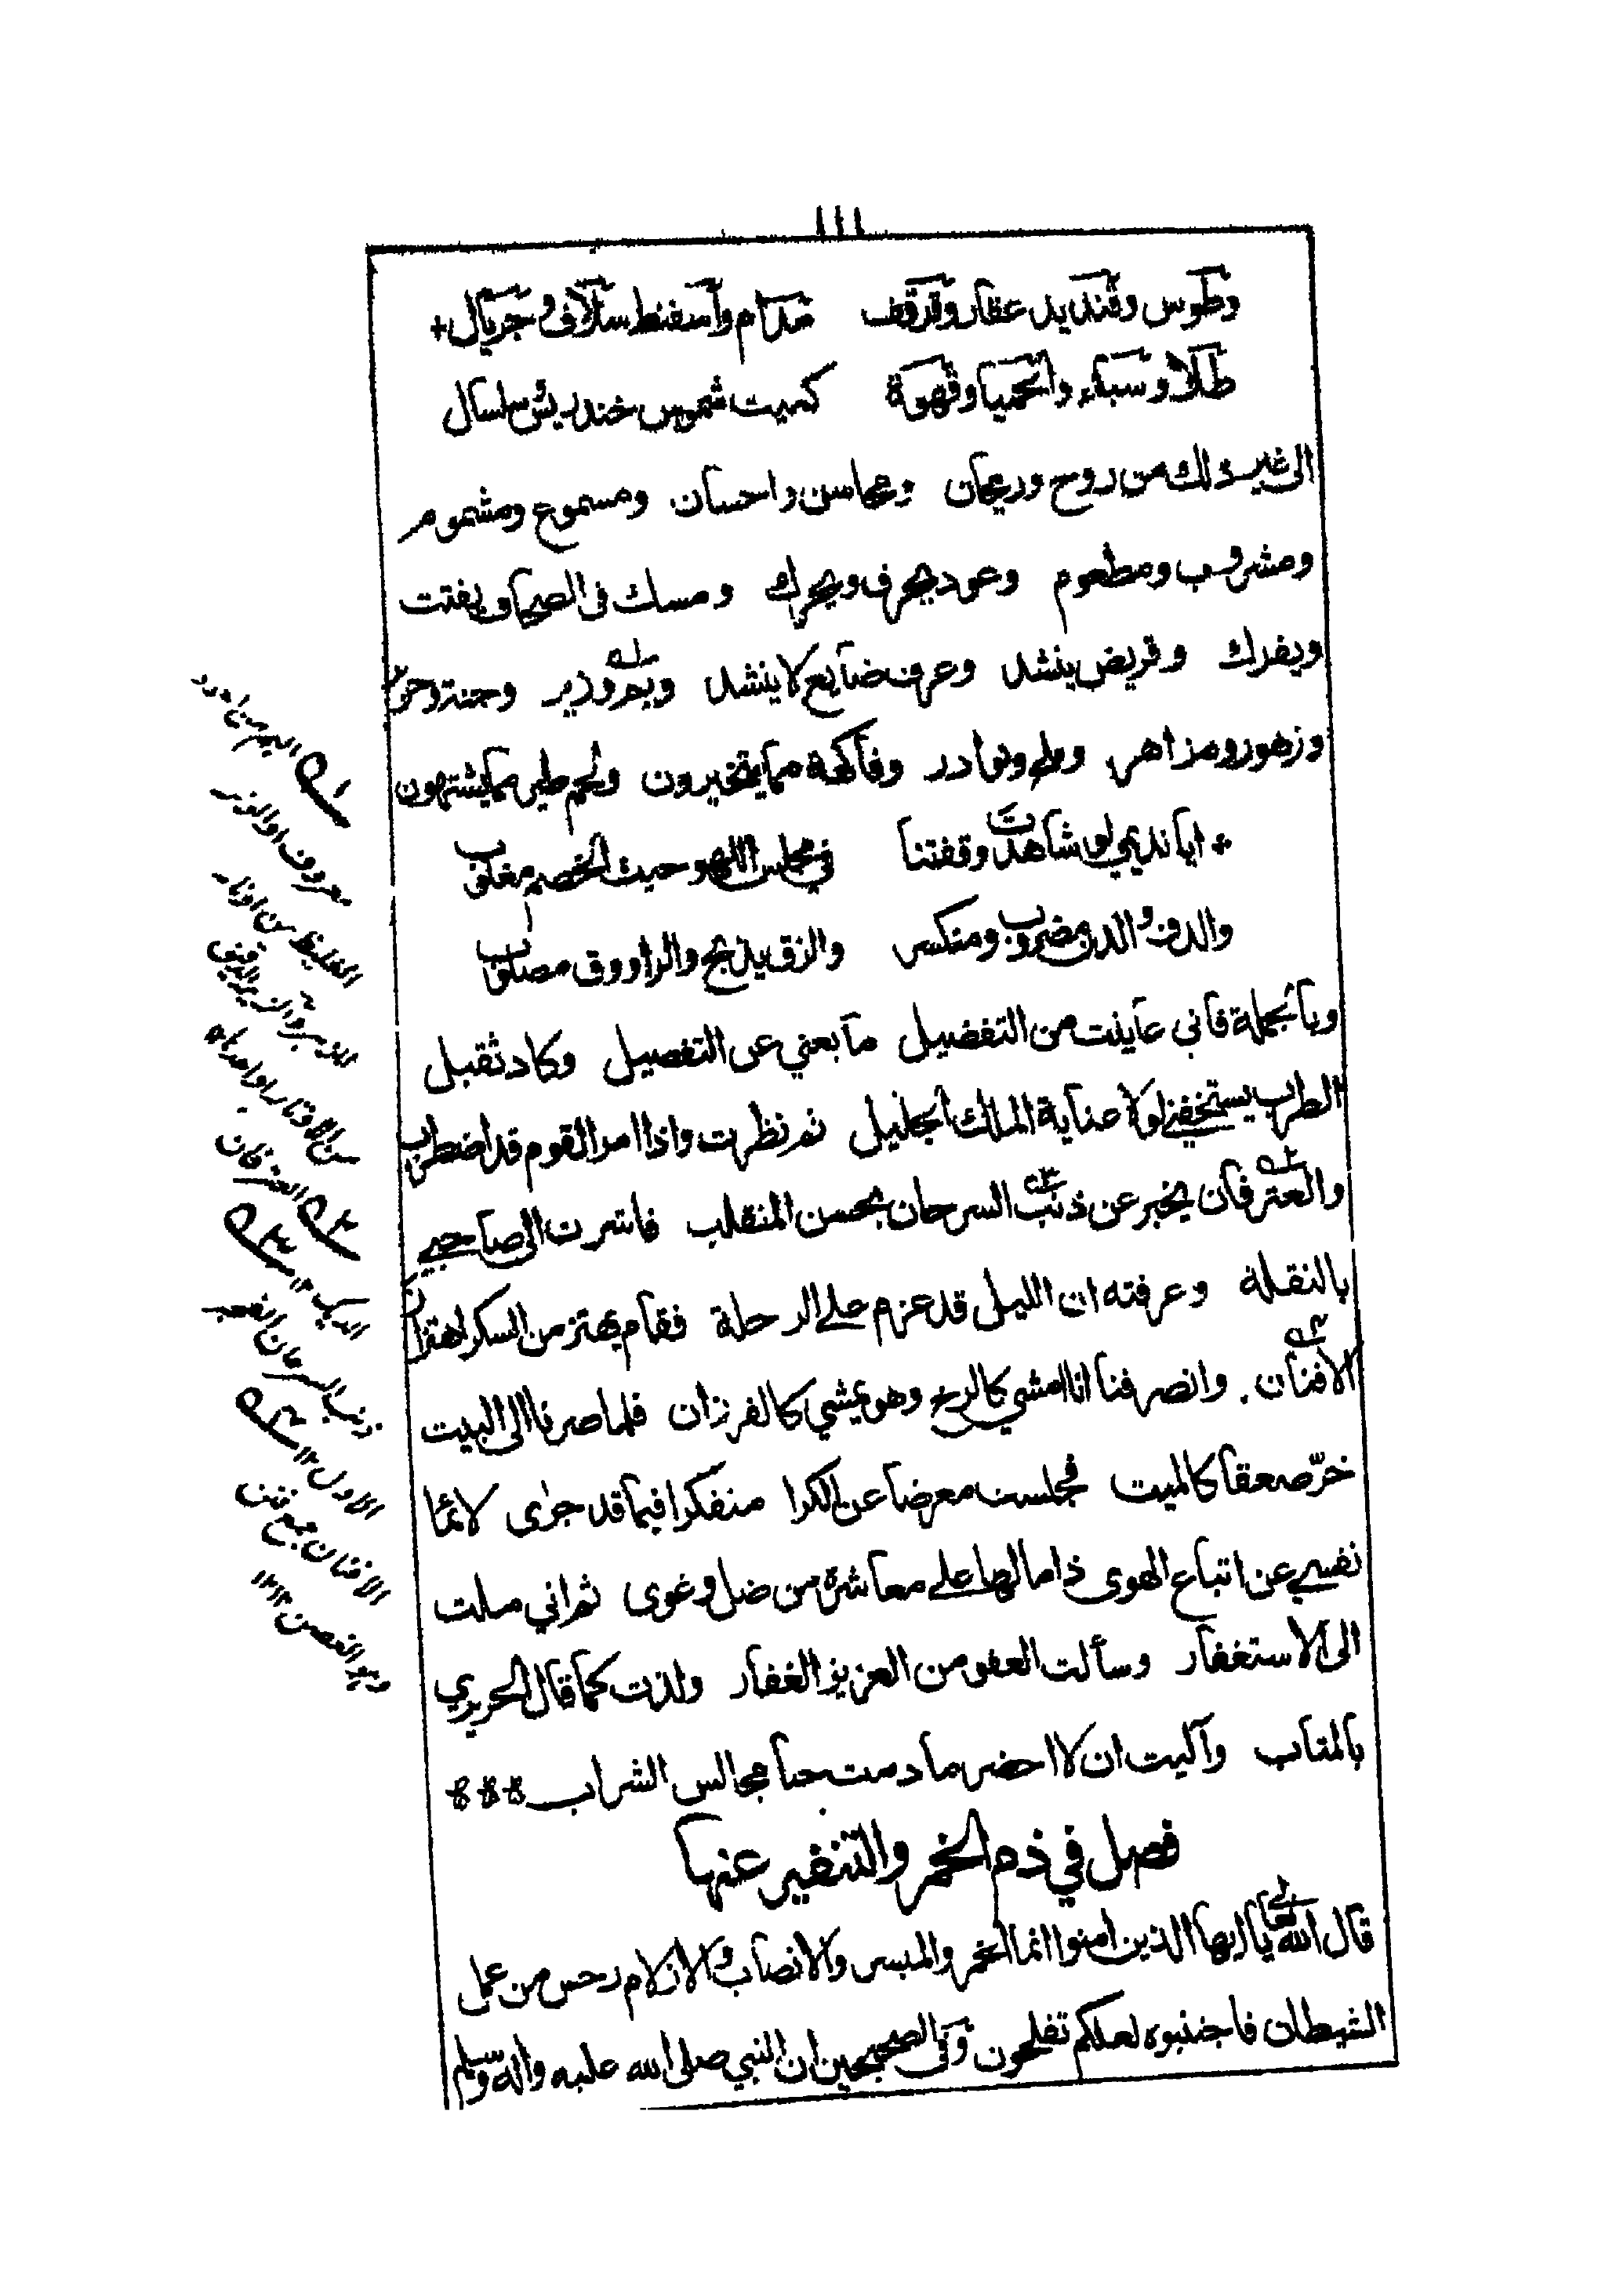 ١١١
وطوس وقنديد عقار وقرقف مدام واسفنط سلاف وجريال
طلا وسباء والحميا وقهوة كميت شموس خندريس سلسال
الى غير ذلك من روح وريحان ومحاسن واحسان ومسموع ومشموم
ومشروب ومطعوم وعود يحرق ويحرك ومسك في الصحاف يفتت
ويفرك وقريض ينشد وعرف ضايع لا ينشد وبم وزير وجنة وحرير
وزهور ومزاهر وطير ونوادر وفاكهة مما يتخيرون ولحم طير مما يشتهون
ايا نديمي لو شاهدت وقفتنا في مجلس اللهو حيث الخصم مغلوب
والدف والدن مضروب ومنكسر والزق يذبح والراووق مصلوب
وبالجملة فاني عاينت من التفضيل ما يغني عن التفصيل وكاد ثقيل
الطرب يستخفني لولا عناية الملك الجليل ثم نظرت واذا امر القوم قد اضطرب
والعترفان يخبر عن ذنب السرحان بحسن المنقلب فاشرت الى صاحبي
بالنقلة وعرفته ان الليل قد عزم على الرحلة فقام يهتز من السكر اهتزاز
الافنان. وانصرفنا انا امشي كالرخ وهو يمشي كالفرزان فلما صرنا الى البيت
خرّ صعقا كالميت فجلست معرضا عن الكرا متفكرا فيما قد جرى لائما
نفسي عن اتباع الهوى ذاما لها على معاشرة من ضل وغوى ثم اني ملت
الى الاستغفار وسألت العفو من العزيز الغفار ولذت كما قال الحريري
بالمتاب وآليت ان لا احضر ما دمت حيا مجالس الشراب
فصل في ذم الخمر والتنفير عنها
قال الله تعالى يا ايها الذين امنوا انما الخمر والميسر والانصاب والازلام رجس من عمل
الشيطان فاجتنبوه لعلكم تفلحون وفي الصحيحين ان النبي صلى الله عليه واله وسلم
البم من
معروف او الوتر
الغليظ من اوتار
والزير الدقيق
من الاوتار او احدها
العترفان
الديك ١٢
ذنب السرحان الفجر
الاول ١٢
الافنان جمع فنن
وهو الغصن ١٢